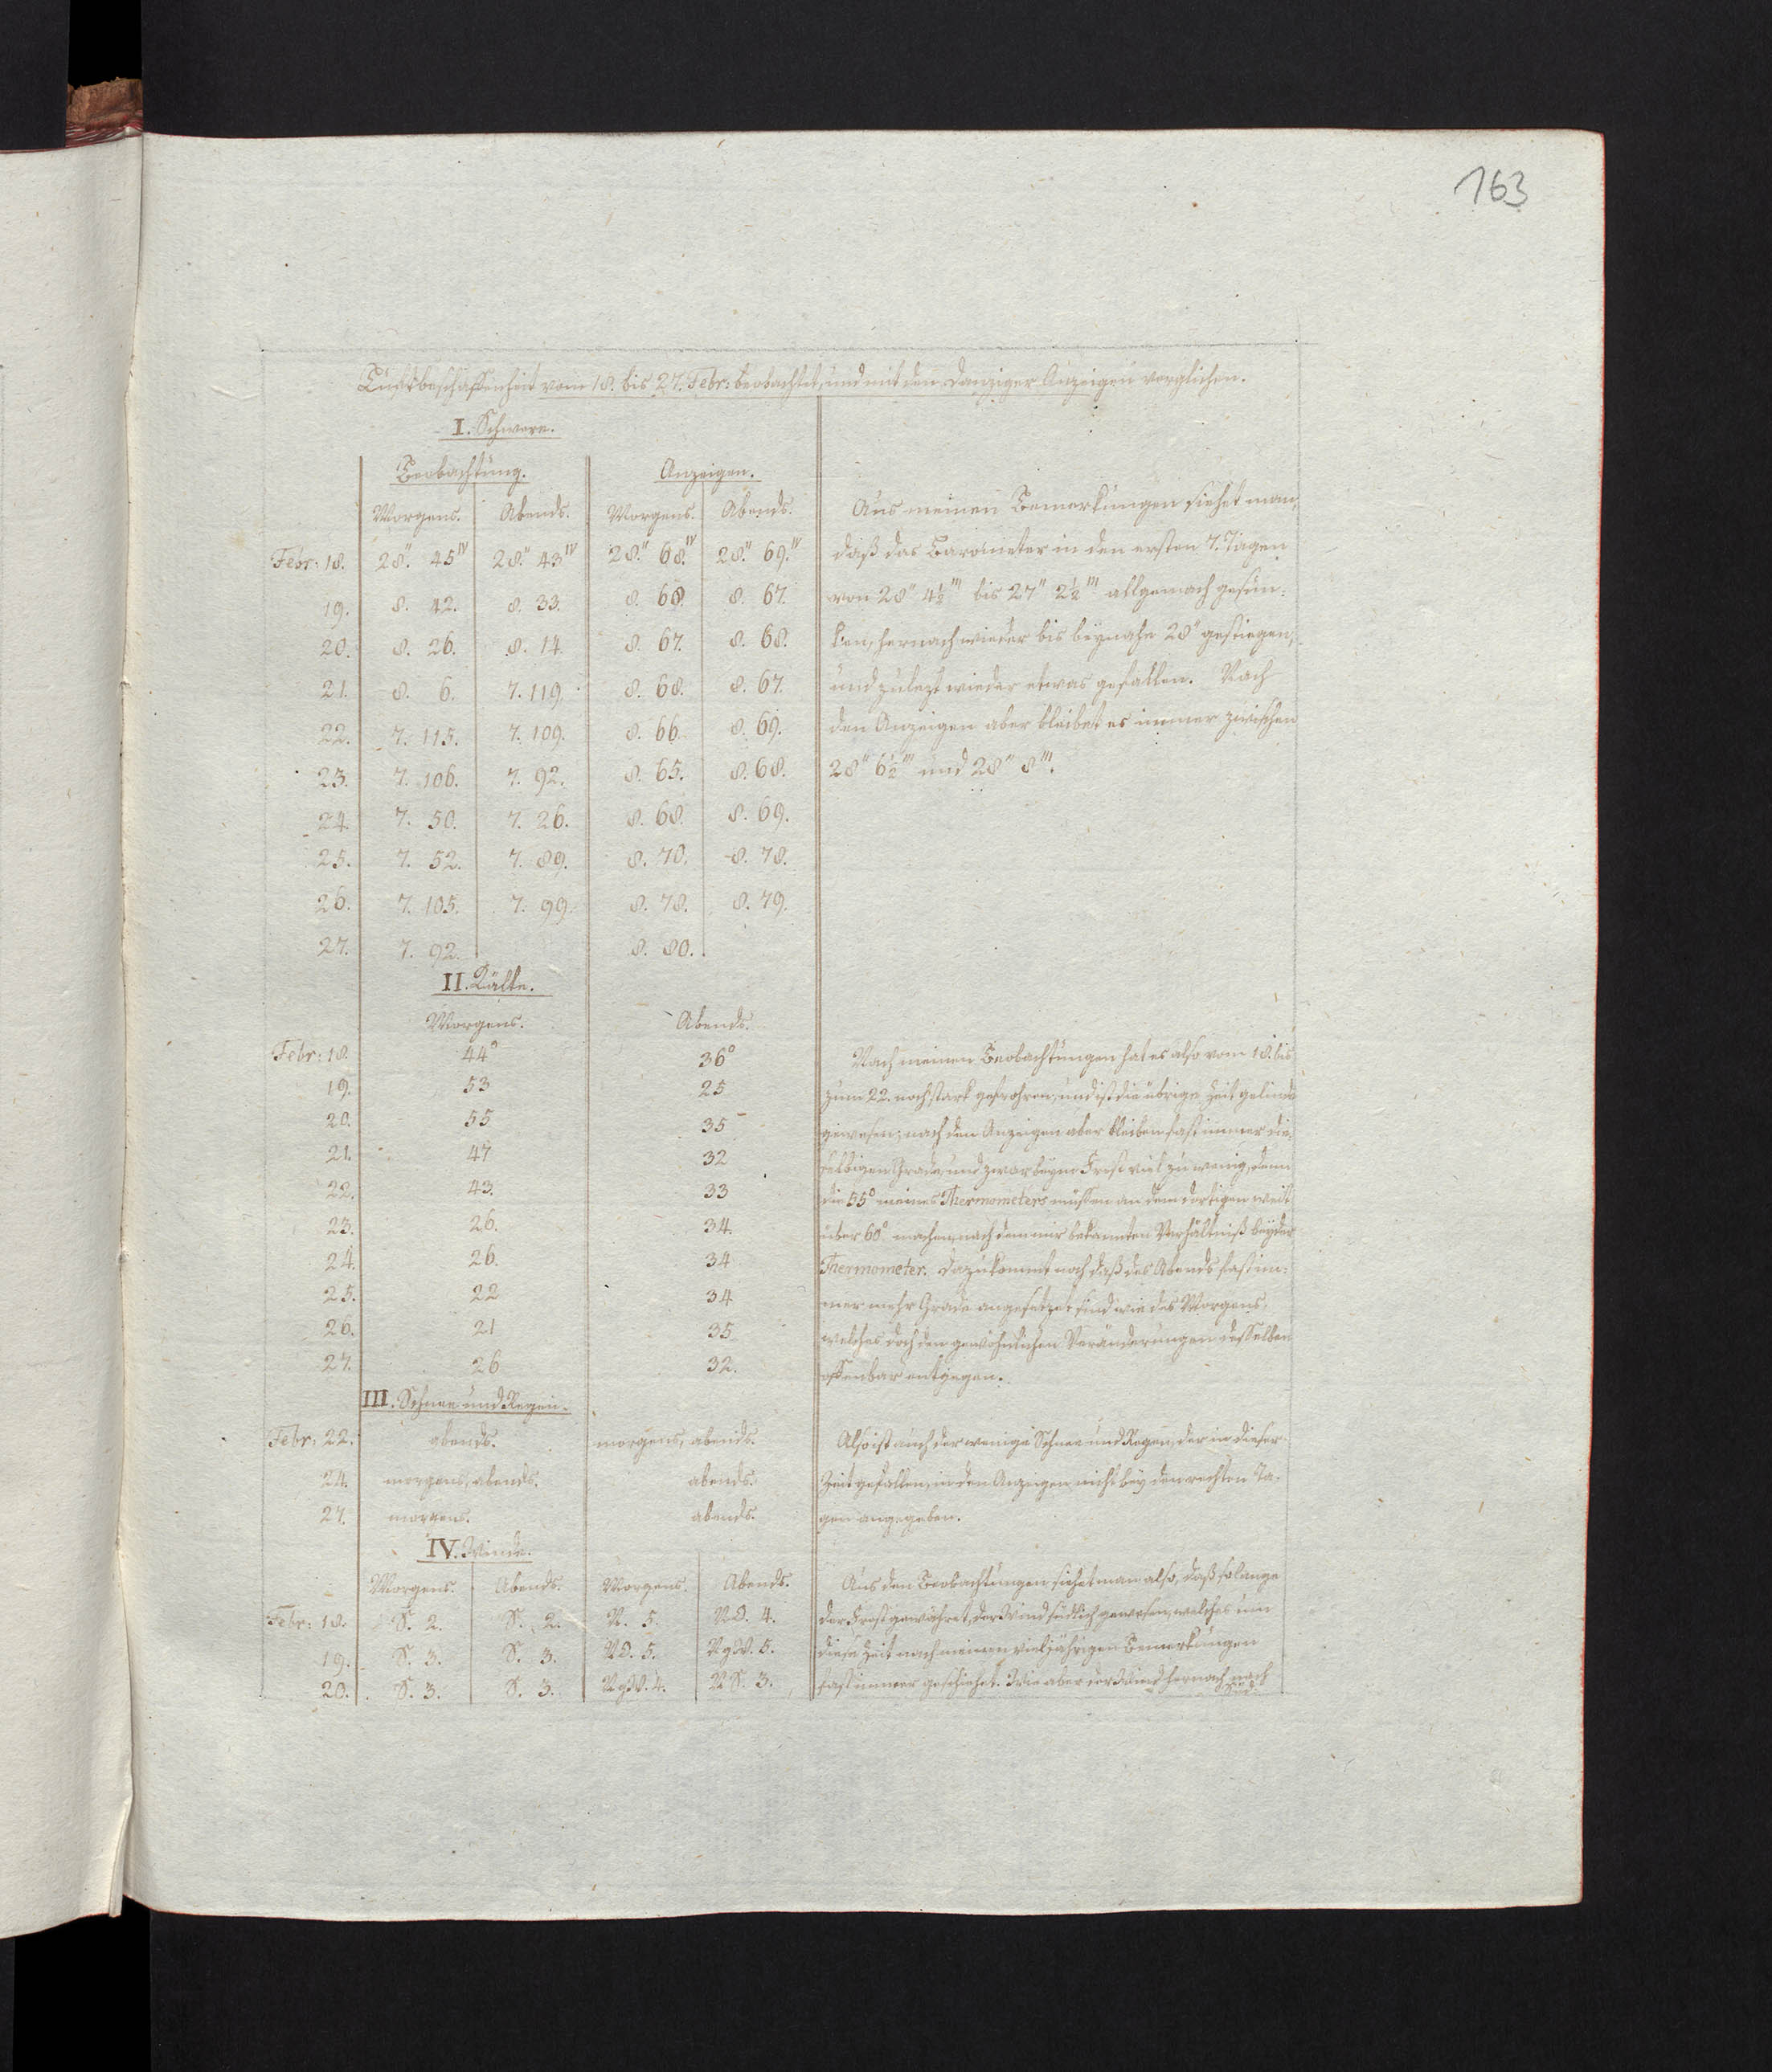 163
Luftbeschaffenheit vom 18. bis 27. Febr: beobachtet, und mit den Danziger Anzeigen verglichen.
I. Schwere.
Beobachtung. Anzeigen.
Morgens. Abends. Morgens. Abends.
Febr: 18. 28." 45^IV 28." 43^IV 28." 68.^IV 28." 69.^IV
19. 8. 42. 8. 33. 8. 68. 8. 67.
20. 8. 26. 8. 14. 8. 67. 8. 68.
21. 8. 6. 7. 119. 8. 68. 8. 67.
22. 7. 115. 7. 109. 8. 66. 8. 69.
23. 7. 106. 7. 92. 8. 65. 8. 68.
24. 7. 50. 7. 26. 8. 68. 8. 69.
25. 7. 52. 7. 89. 8. 78. 8. 78.
26. 7. 105. 7. 99. 8. 78. 8. 79.
27. 7. 92. 8. 80.
Aus meinen Bemerkungen siehet man,
daß das Barometer in den ersten 7. Tagen
von 28" 4½''' bis 27" 2½''' allgemach gesun-
ken, hernach wieder bis beynahe 28" gestiegen,
und zulezt wieder etwas gefallen. Nach
den Anzeigen aber bleibet es immer zwischen
28" 6½''' und 28" 8'''.
II. Kälte.
Morgens. Abends.
Febr: 18. 44° 36°
19. 53 25
20. 55 35
21. 47 32
22. 43. 33
23. 26. 34.
24. 26. 34
25. 22 34
26. 21 35
27. 26 32.
Nach meinen Beobachtungen hat es also vom 18. bis
zum 22. noch stark gefrohren, und ist die übrige Zeit gelinde
gewesen; nach den Anzeigen aber bleiben fast immer die-
selbigen Grade, und zwar beym Frost viel zu wenig, denn
die 55° meines Thermometers müssen an dem dortigen weit
über 60° machen, nach dem mir bekannten Verhältniß beyder
Thermometer. Dazu kommt noch daß des Abends fast im-
mer mehr Grade angesetzet sind wie des Morgens,
welches doch den gewöhnlichen Veränderungen desselben
offenbar entgegen.
III. Schnee und Regen.
Febr: 22. abends. morgens, abends.
24. morgens, abends. abends.
27. morgens. abends.
Also ist auch der wenige Schnee und Regen, der in dieser
Zeit gefallen, in den Anzeigen nicht bey den rechten Ta-
gen angegeben.
IV. Winde.
Morgens. Abends. Morgens. Abends.
Febr: 18. S. 2. S. 2. N. 5. NO. 4.
19. S. 3. S. 3. NO. 5. NgW. 5.
20. S. 3. S. 3. NgW. 4. NS. 3.
Aus den Beobachtungen siehet man also, daß so lange
der Frost gewähret, der Wind südlich gewesen, welches um
diese Zeit nach meinen vieljährigen Bemerkungen
fast immer geschiehet. Wie aber der Wind hernach nach
Süd-